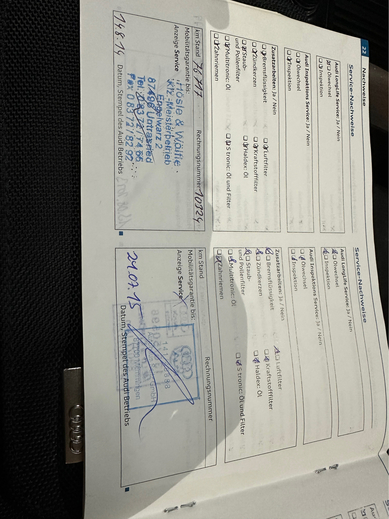 22 Nachweise
Service-Nachweise
Audi LongLife Service: Ja / Nein
Ölwechsel
Inspektion
Audi Inspektions Service: Ja / Nein
Ölwechsel
Inspektion
Zusatzarbeiten: Ja / Nein
Bremsflüssigkeit
Luftfilter
Zündkerzen
Kraftstofffilter
Staub-
und Pollenfilter
Haldex: Öl
Multitronic: Öl
S tronic: Öl und Filter
Zahnriemen
km Stand
Rechnungsnummer 10324
Mobilitätsgarantie bis:
Anzeige Service
& Wölfle
Kfz-Meisterbetrieb
Engelwarz 2
Untrasried
14.8.14
Datum, Stempel des Audi Betriebs
Service-Nachweise
Audi LongLife Service: Ja / Nein
Ölwechsel
Inspektion
Audi Inspektions Service: Ja / Nein
Ölwechsel
Inspektion
Zusatzarbeiten: Ja / Nein
Bremsflüssigkeit
Luftfilter
Zündkerzen
Kraftstofffilter
Staub-
und Pollenfilter
Haldex: Öl
Multitronic: Öl
S tronic: Öl und Filter
Zahnriemen
km Stand
Rechnungsnummer
Mobilitätsgarantie bis:
Anzeige Service
29.07.15
Datum, Stempel des Audi Betriebs